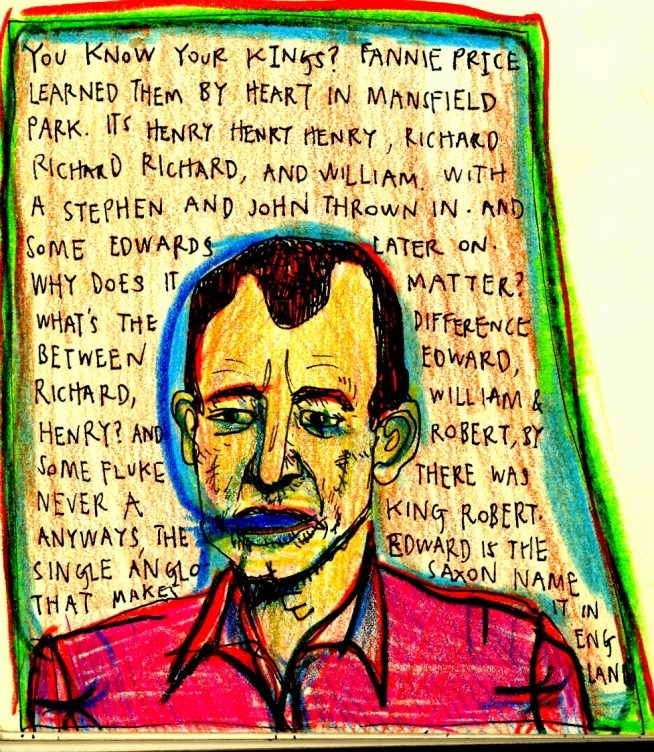 YOU KNOW YOUR KINGS? FANNIE PRICE
LEARNED THEM BY HEART IN MANSFIELD
PARK. ITS HENRY HENRY HENRY, RICHARD
RICHARD RICHARD, AND WILLIAM. WITH
A STEPHEN AND JOHN THROWN IN. AND
SOME EDWARDS LATER ON.
WHY DOES IT MATTER?
WHAT'S THE DIFFERENCE
BETWEEN EDWARD,
RICHARD, WILLIAM &
HENRY? AND ROBERT, BY
SOME FLUKE THERE WAS
NEVER A KING ROBERT.
ANYWAYS, THE EDWARD IS THE
SINGLE ANGLO SAXON NAME
THAT MAKES IT IN
ENG
LAND